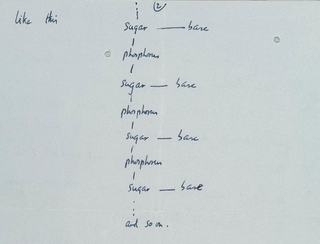 2
like this
sugar — base
phosphorus
sugar — base
phosphorus
sugar — base
phosphorus
sugar — base
and so on.